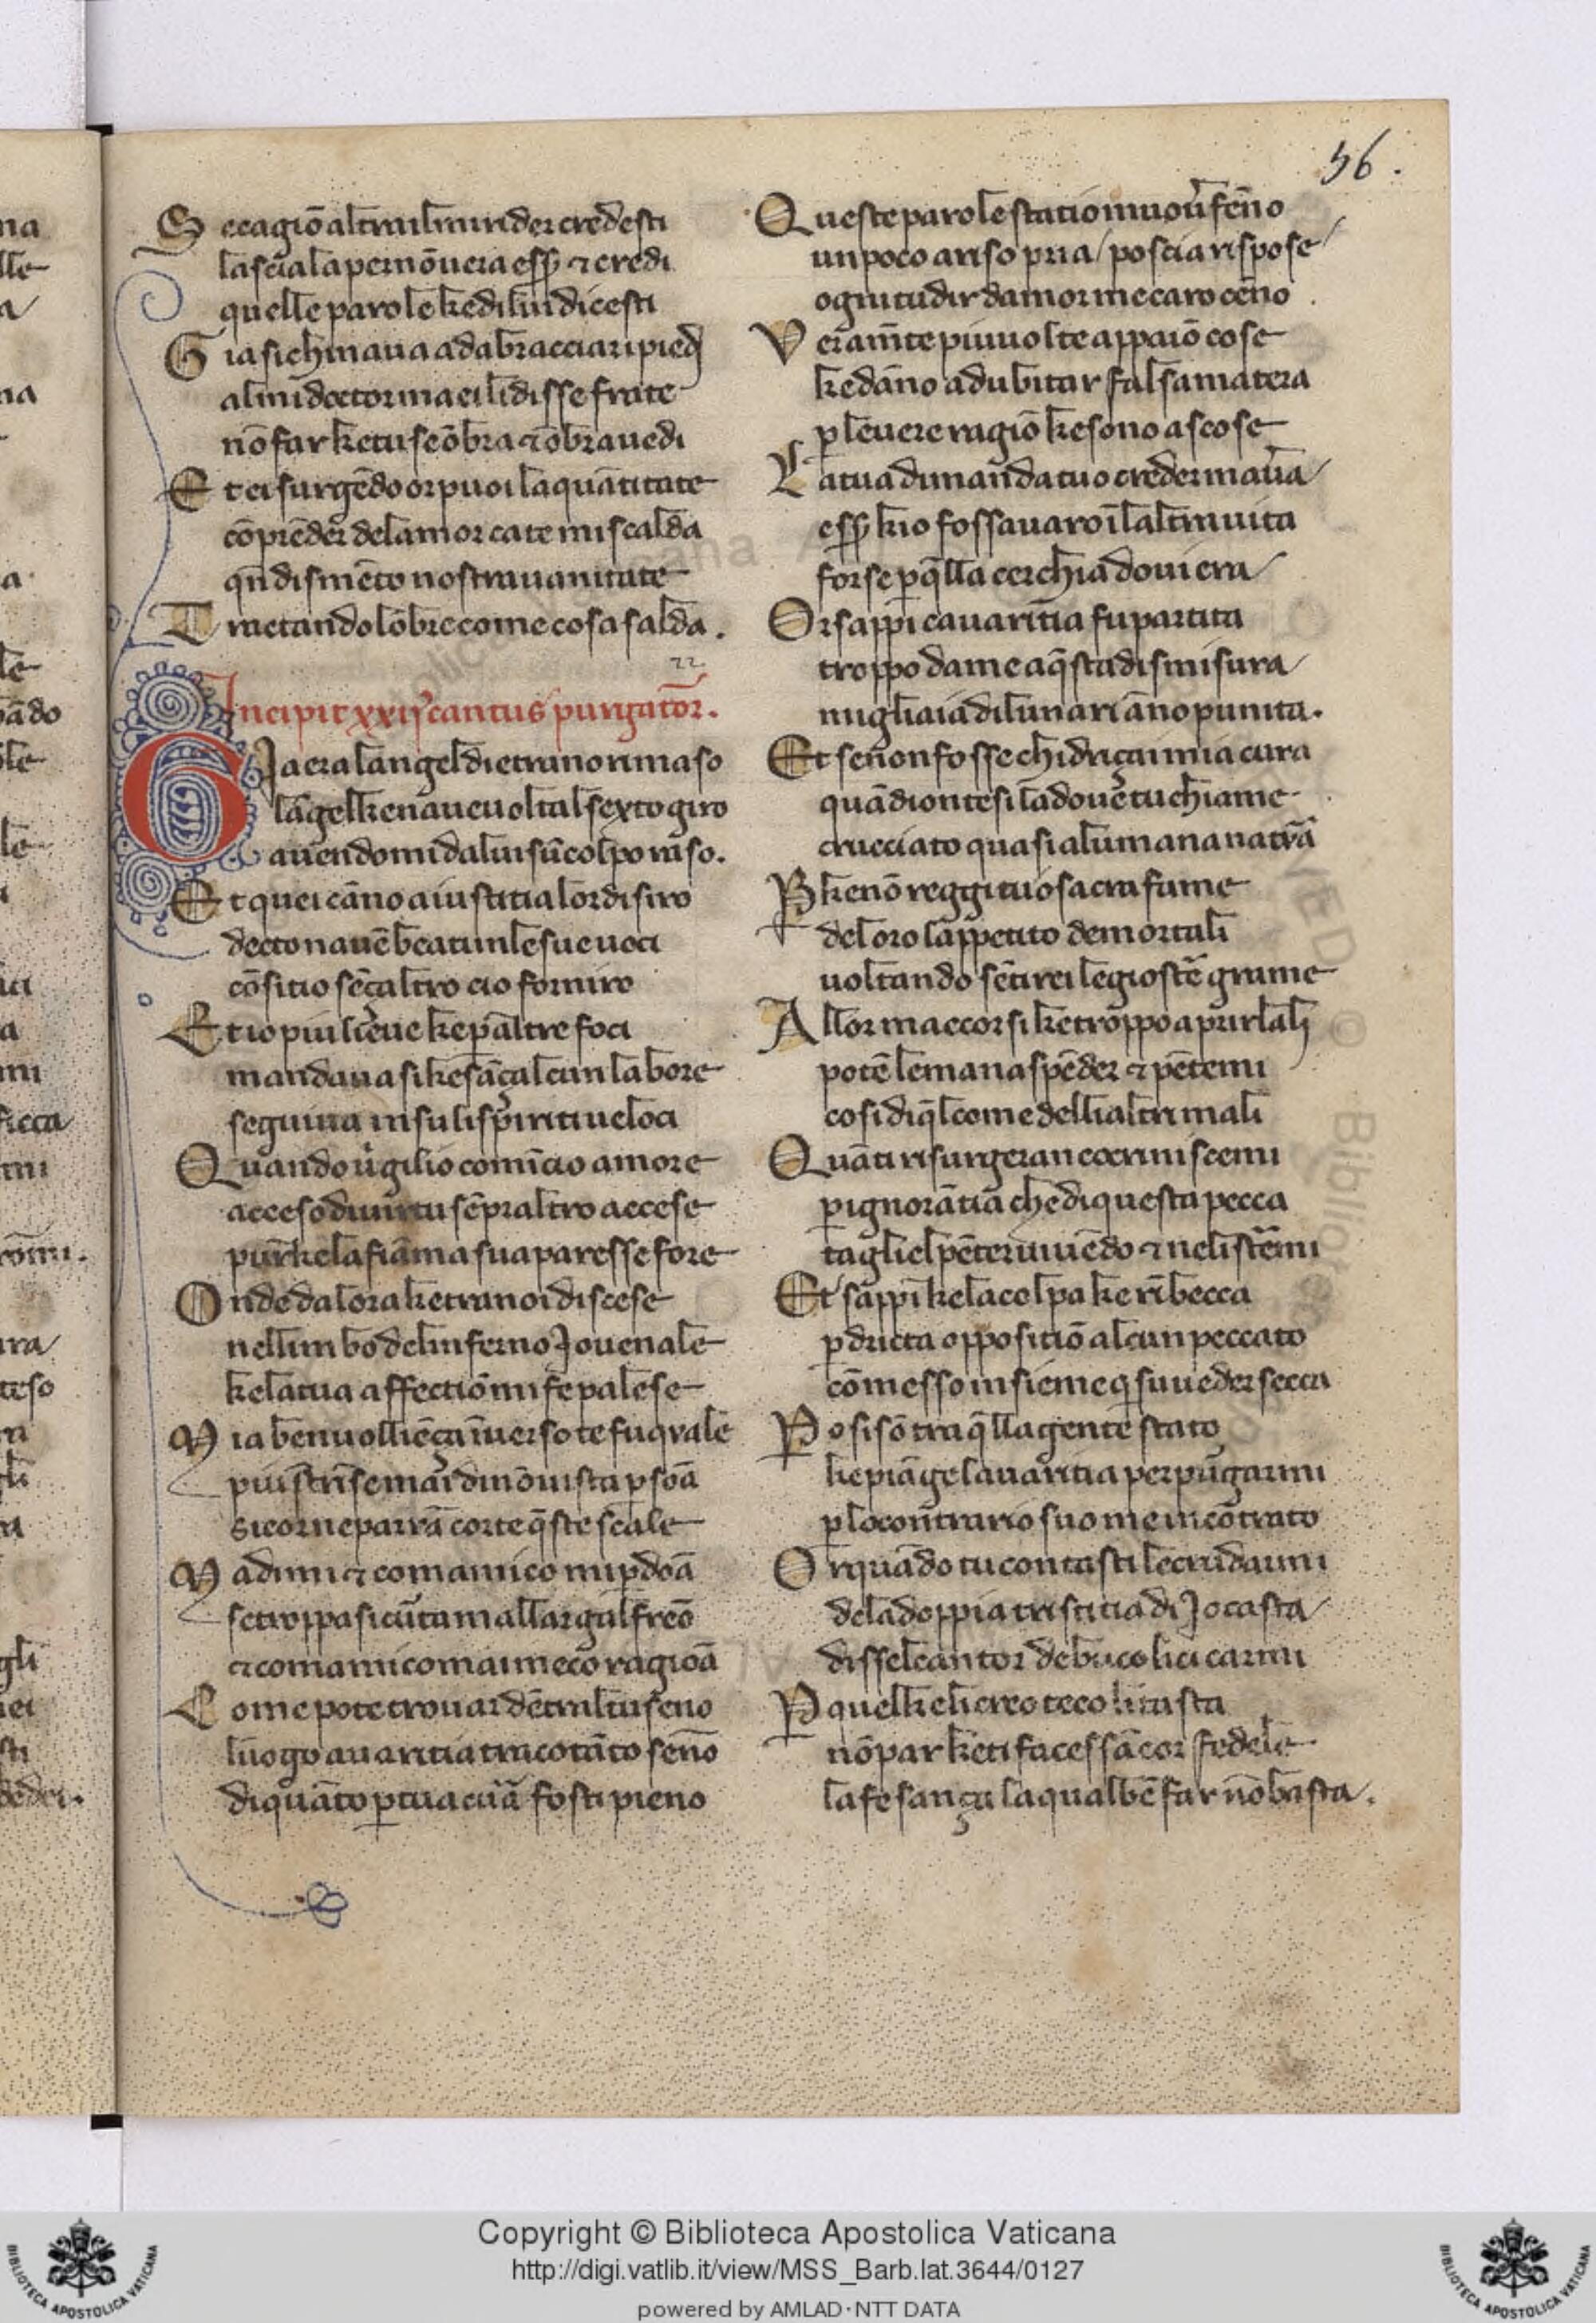 56.
Se cagiō altra il mio rider credesti
lasciala per nō uera ess̄ ⁊ credi
quelle parole ke di lui dicesti
Gia sichinaua ad abracciar i pied
al mi doctor ma ei li disse frate
nō far ke tu se ōbra ⁊ ōbra uedi
Et ei surgēdo or puoi la quātitate
cōprēder de lamor ca te mi scalda
qn̄ dismēto nostra uanitate
Tractando lōbre come cosa salda.
22
Incipit xxiſ cantus purgator̄.
GIa era langel dietro a noi rimaso
lāgel ke nauea uolti al sexto giro
auendomi dal uiso ū colpo raso.
Et quei cāno a iustitia lor disiro
decto nauē beati in le sue uoci
cō sitio sēçaltro cio forniro
Et io piu lieue ke p laltre foci
mandaua si ke sāçalcun labore
seguiua in su li sp̄iriti ueloci
Quando uirgilio comīcio amore
acceso di uirtu sēpr altro accese
pur ke la fiāma sua paresse fore
Onde da lora ke tra noi discese
nel limbo de linferno Jouenale
ke la tua affectiō mi fe palese
Mia beniuolliēça īuerso te fu q̄ale
piu strīse mai di nō uista p̄soā
si cor me parrā corte q̄ste scale
Ma dimmi ⁊ com amico mi p̄doā
se troppa sicurta mallargal freō
⁊ com amico mai meco ragioā
Come pote trouar dētral tu seno
luogo auaritia tra cotāto seño
di quāto p tua cura fosti pieno
Queste parole statio muouer fēno
un poco a riso pria / poscia rispose
ogni tu dir damor me caro cēno.
Veram̄te piu uolte appaiō cose
ke dāno a dubitar falsa matera
p le uere ragiō ke sono ascose
La tua dimanda tuo creder mauera
ess̄ kio fossauaro ī laltra uita
forse p q̄lla cerchia dou iera
Or sappi cauaritia fu partita
troppo da me ⁊ q̄sta dismisura
migliaia di lunari āno punita.
Et se non fosse chi driçai mia cura
quādio ntesi la doue tu chiame
crucciato quasi a lumana natrā
P ke nō reggi tu o sacra fame
de loro lappetito de mortali
uoltando sētirei le giostre grame
Allor maccorsi ke troppo aprir lali
potē le mana spēder ⁊ pētemi
cosi di q̄l come delli altri mali
Quāti risurgeran coi crini scemi
p ignorātia che di questa pecca
tagliel pēter uiuēdo ⁊ ne li stremi
Et sappi ke la colpa ke rībecca
p dricta oppositiō alcun peccato
cōmesso insieme q̄ suo ueder secca
Po sis sō tra q̄lla gente stato
ke piāge lauaritia per purgarmi
p lo contrario suo me incōtrato
Or quādo tu contasti le crude armi
de la doppia tristitia di Jocasta
dissel cantor de bucolici carmi
P quel ke clio teco li tasta
nō par ke ti facessācor fedele
la fe sança la qual bē far nō basta.
Copyright © Biblioteca Apostolica Vaticana
http://digi.vatlib.it/view/MSS_Barb.lat.3644/0127
powered by AMLAD·NTT DATA
BIBLIOTECA APOSTOLICA VATICANA
BIBLIOTECA APOSTOLICA VATICANA